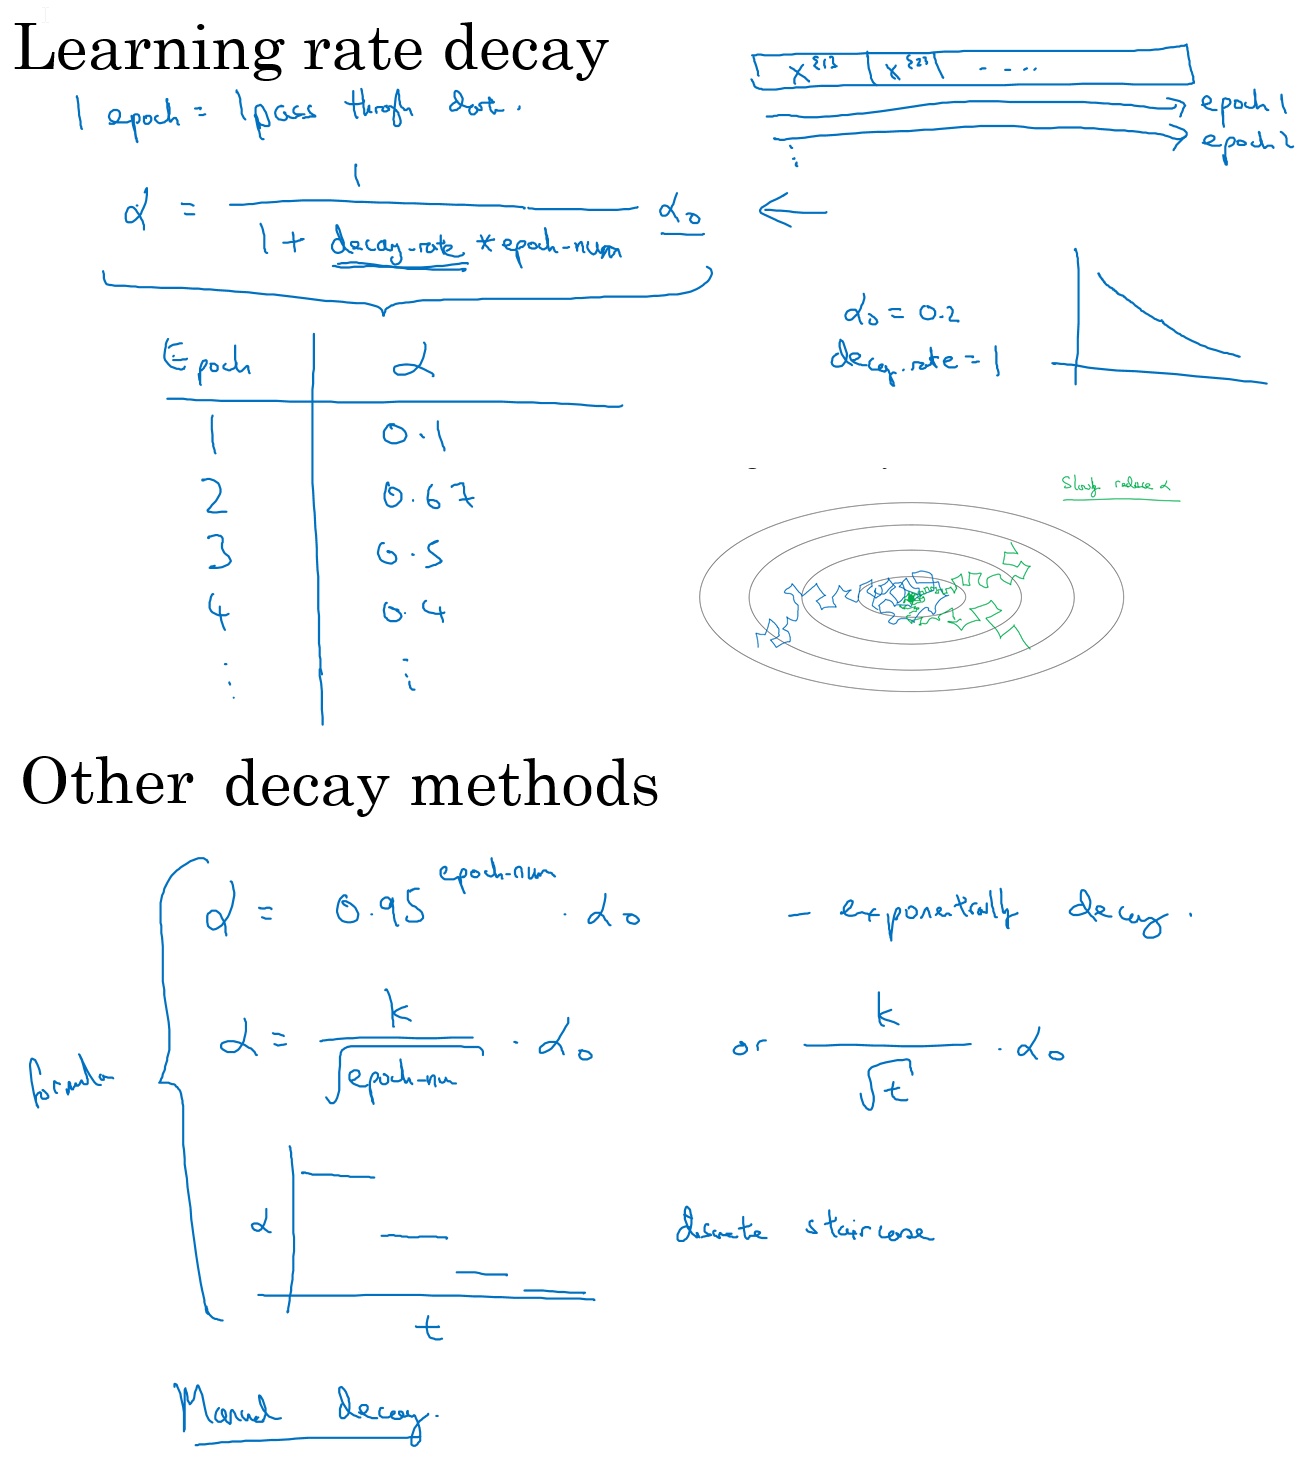 Learning rate decay
1 epoch = 1 pass through data.
X^{1} | X^{2} | ....
epoch 1
epoch 2
⋮
α = 1 / (1 + decay-rate * epoch-num) α₀ ←
α₀ = 0.2
decay-rate = 1
Epoch | α
1 | 0.1
2 | 0.67
3 | 0.5
4 | 0.4
⋮ | ⋮
Slowly reduce α
Other decay methods
formula
α = 0.95^epoch-num · α₀ - exponentially decay.
α = k / √epoch-num · α₀ or k / √t · α₀
α
t
discrete staircase
Manual decay.